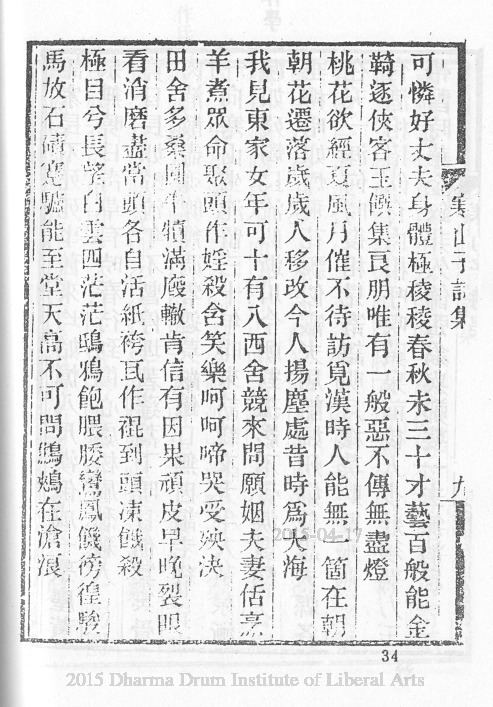 寒山子詩集
九
可憐好丈夫身體極稜稜春秋未三十才藝百般能金
羇逐俠客玉饌集良朋唯有一般惡不傳無盡燈
桃花欲經夏風月催不待訪覓漢時人能無一箇在朝
朝花遷落歲歲人移改今人揚塵處昔時爲大海
我見東家女年可十有八西舍競來問願姻夫妻活烹
羊煮眾命聚頭作婬殺含笑樂呵呵啼哭受殃決
田舍多桑園牛犢滿廄轍肯信有因果頑皮早晚裂眼
看消磨盡當頭各自活紙袴瓦作裩到頭凍餓殺
極目兮長望白雲四茫茫鴟鴉飽腲腰鸞鳳飢徬徨駿
馬放石磧蹇驢能至堂天高不可問鷦鵊在滄浪
34
2015-04-17
2015 Dharma Drum Institute of Liberal Arts